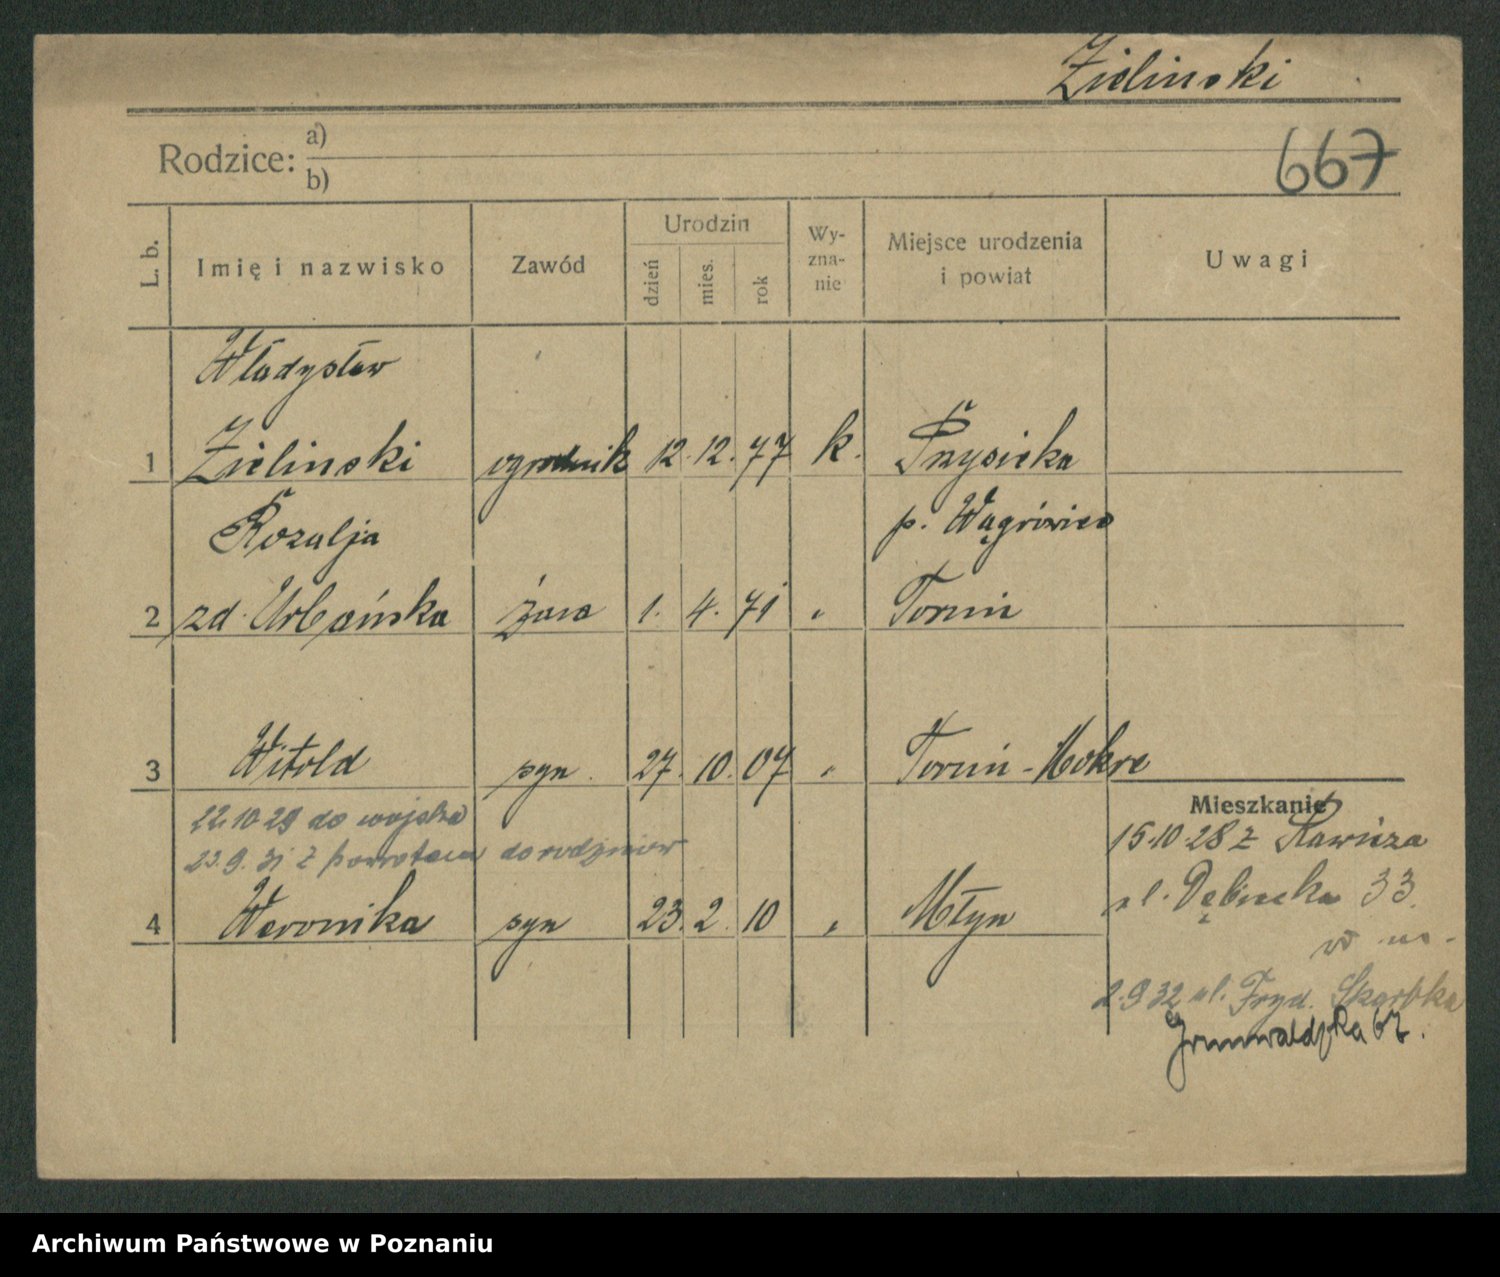 Zielinski
Rodzice: a)
b)
667
L. b. Imię i nazwisko Zawód Urodzin dzień mies. rok Wy-zna-nie Miejsce urodzenia i powiat Uwagi
Władysław
1 Zielinski ogrodnik 12. 12. 77 k. Przysieka
Rozalja p. Wągrówiec
2 zd. Urbańska żona 1. 4. 71 " Toruń
3 Witold syn 27. 10. 07 " Toruń-Mokre
22.10 29 do wojska
23.9.31 z powrotem do rodziców
4 Weronika syn 23. 2. 10 " Młyn
Mieszkanie
15.10.28 z Rawicza
ul. Dębiecka 33.
2.9 32 ul. Fryd. Skarbka
Grunwaldzka 67.
Archiwum Państwowe w Poznaniu